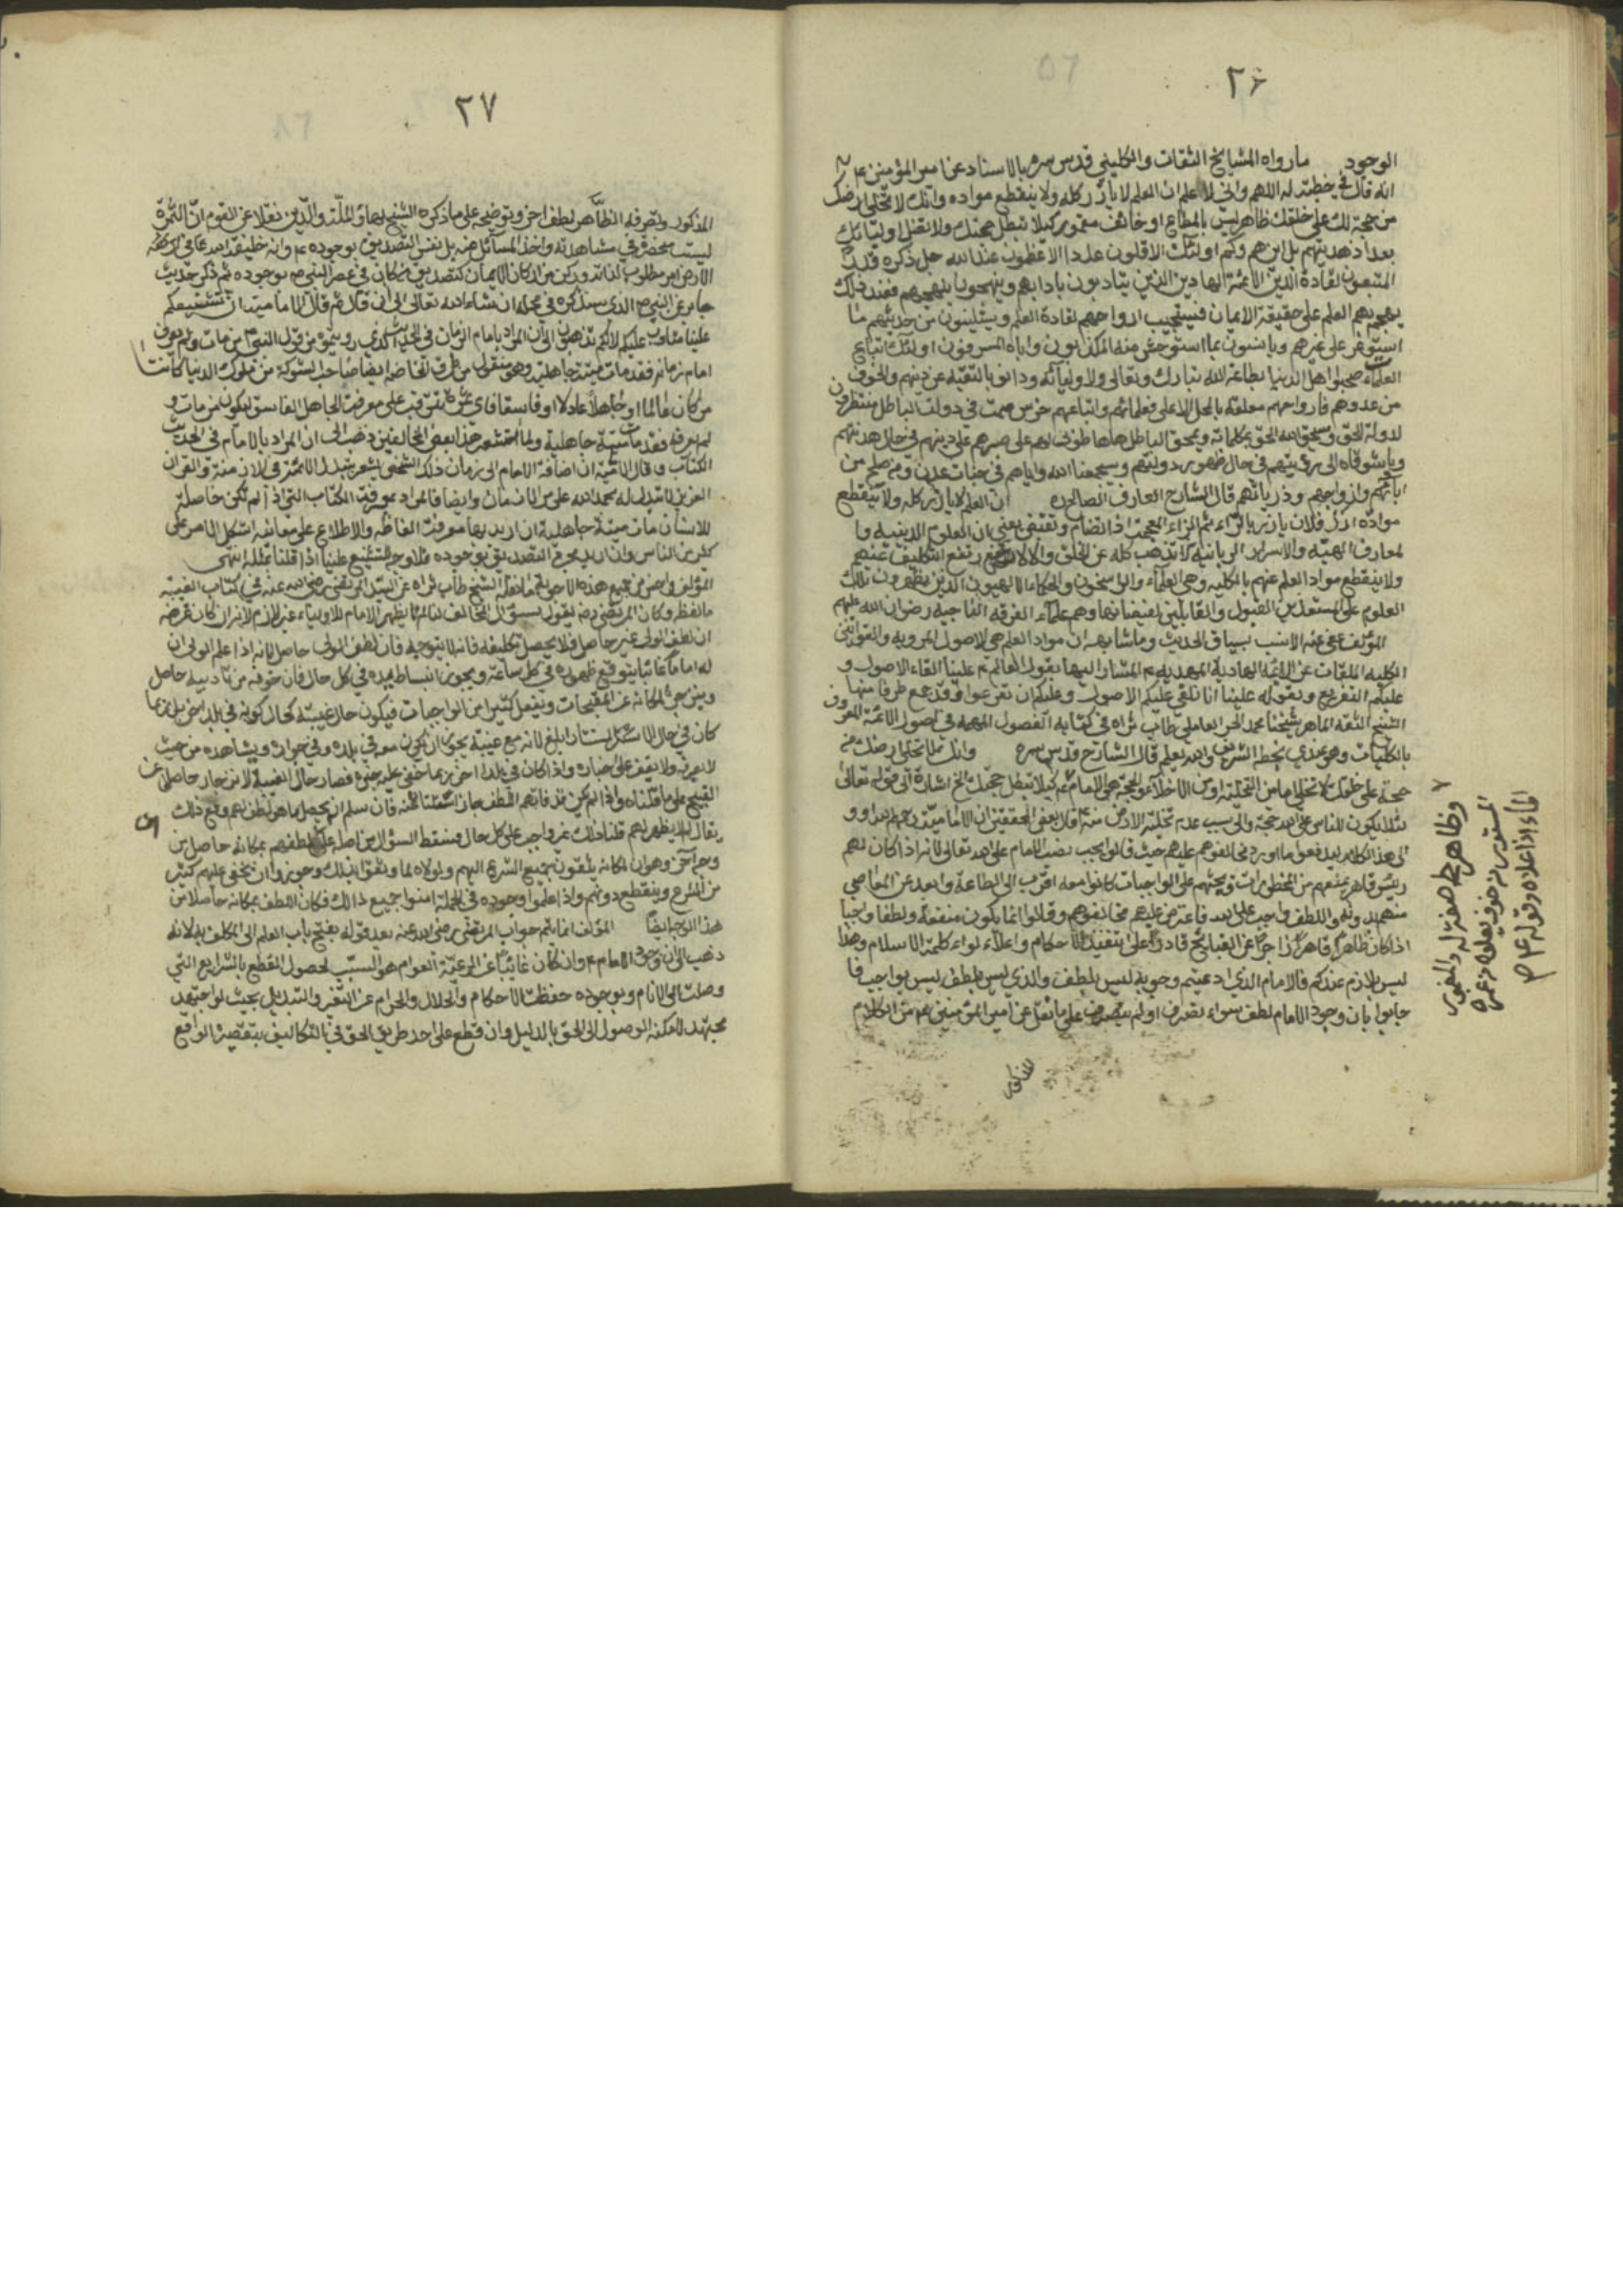 ٢٦
الوجود ما رواه المشايخ الثقات والكليني قدس سره بالاسناد عن امير المؤمنين ع
انه قال في خطبة له اللهم واني لاعلم ان العلم لا يأرز كله ولا ينقطع مواده وانك لا تخلي ارضك
من حجة لك على خلقك ظاهر ليس بالمطاع او خائف مغمور كيلا تبطل حجتك ولا تضل اوليائك
بعد اذ هديتهم بل اين هم وكم اولئك الاقلون عددا الاعظمون عند الله جل ذكره قدرا
المتبعون لقادة الدين الائمة الهادين الذين يتادبون بادابهم وينهجون نهجهم فعند ذلك
يهجم بهم العلم على حقيقة الايمان فيستجيب ارواحهم لقادة العلم ويستلينون من حديثهم ما
استوعر على غيرهم ويانسون بما استوحش منه المكذبون واباه المسرفون اولئك اتباع
العلماء صحبوا اهل الدنيا بطاعة الله تبارك وتعالى ولاوليائه ودانوا بالتقية عن دينهم والخوف
من عدوهم فارواحهم معلقة بالمحل الاعلى فعلمائهم واتباعهم خرس صمت في دولة الباطل منتظرون
لدولة الحق وسيحق الله الحق بكلماته ويمحق الباطل هاها طوبى لهم على صبرهم على دينهم في حال هدنتهم
ويا شوقاه الى رؤيتهم في حال ظهور دولتهم وسيجمعنا الله واياهم في جنات عدن ومن صلح من
ابائهم وازواجهم وذرياتهم قال الشارح العارف الصالح ره ان العلم لا يارز كله ولا ينقطع
مواده ارز فلان يارز بالراء ثم الزاء المعجمة اذا تضام وتقبض يعني ان العلوم الدينية وا
لمعارف الهية والاسرار الربانية لا تذهب كله عن الخلق والا لارتفع التكليف عنهم
ولا ينقطع مواد العلم عنهم بالكلية وهي العلماء والراسخون والحكماء الالهيون الذين يظهرون تلك
العلوم على المستعدين القبول والقابلين لفيضانها وهم علماء الفرقة الناجية رضوان الله عليهم
المؤلف عفى عنه الانسب بسياق الحديث وما شابهه ان مواد العلم هي الاصول المروية والقوانين
الكلية الملقات عن الائمة الهادية المهدية ع المشار اليها بقول العالم ع علينا القاء الاصول و
عليكم التفريع وبقوله علينا انا نلقي عليكم الاصول وعليكم ان تفرعوا وقد جمع طرفا منها
الشيخ الثقة الماهر شيخنا محمد الحر العاملي طاب ثراه في كتابه الفصول المهمة في اصول الائمة المعروف
بالكليات وهو عندي بخطه الشريف والله يعلم قال الشارح قدس سره وانك لا تخلي ارضك من
حجة على خلقك لا تخلي اما من التخلية او من الاخلاء والحجة هي الامام ع كيلا تبطل حججك الخ اشارة الى قوله تعالى
لئلا يكون للناس على الله حجة والى سبب عدم تخلية الارض منه
الى هذا الكلام
رئيس قاهر يمنعهم من المحظورات ويحثهم على الواجبات كانوا معه اقرب الى الطاعة وابعد عن المعاصي
منهم بدونه واللطف واجب على الله فاعترض عليهم مخالفوهم وقالوا انما يكون منفعة ولطفا واجبا
اذا كان ظاهرا قاهرا زاجرا عن القبايح قادرا على تنفيذ الاحكام واعلاء لواء كلمة الاسلام وهذا
ليس بلازم عندكم فالامام الذي ادعيتم وجوبه ليس بلطف والذي ليس بلطف ليس بواجب فا
جابوا بان وجود الامام لطف سواء تصرف او لم يتصرف على ما نقل عن امير المؤمنين ع من الكلام
المذكور
وظاهر صفة له والمغمور
المستور من خوف يعلوه من غمره
الماء اذا علاه وقوله ع
٢٧
المذكور وتصرفه الظاهر لطف اخر وتوضيحه على ما ذكره الشيخ بهاء الملة والدين نقلا عن القوم ان الثمرة
ليست منحصرة في مشاهدته واخذ المسائل عنه بل نفس التصديق بوجوده ع وانه خليفة الله تعالى في ارضه
الارض امر مطلوب لذاته وركن من اركان الايمان كتصديق من كان في عصر النبي ص بوجوده ثم ذكر حديث
جابر عن النبي ص الذي سنذكره في محله ان شاء الله تعالى الى ان قال
علينا مقلوب عليكم لانكم تذهبون الى ان المراد بامام الزمان في الحديث الذي رويتموه من قول النبي ص من مات ولم يعرف
امام زمانه فقد مات ميتة جاهلية وهو منقول من طرق الخاصة ايضا صاحب الشوكة من ملوك الدنيا كائنا
من كان عالما او جاهلا عادلا او فاسقا فاي ثمرة تترتب على معرفة الجاهل الفاسق ليكون من مات و
لم يعرفه فقد مات ميتة جاهلية ولما استشعر هذا بعض المخالفين ذهب الى ان المراد بالامام في الحديث
الكتاب وقال الامامية ان اضافة الامام الى زمان ذلك الشخص يشعر بتبدل الائمة في الازمنة والقران
العزيز لا تبدل له بحمد الله على مر الازمان وايضا فالمراد بمعرفة الكتاب التي اذا لم تكن حاصلة
للانسان مات ميتة جاهلية ان اريد بها معرفة الفاظه والاطلاع على معانيه اشكل الامر على
كثير من الناس وان اريد مجرد التصديق بوجوده فلا وجه للتشنيع علينا اذا قلنا بمثله انتهى
المؤلف واحسن من جميع هذه الاجوبة ما نقله الشيخ طاب ثراه عن السيد المرتضى رضي الله عنه في كتاب الغيبة
ما لفظه وكان المرتضى رضي يقول
ان لطف الولي غير حاصل فلا يحصل تكليفه فانه لا يتوجه فان لطف الولي حاصل لانه اذا علم الولي ان
له اماما غائبا يتوقع ظهوره في كل ساعة ويجوز انبساط يده في كل حال فان خوفه من تاديبه حاصل
وينزجر لمكانه عن المقبحات ويفعل كثيرا من الواجبات فيكون حال غيبته كحال كونه في بلد اخر بل ربما
كان في حال الاستتار ابلغ لانه مع غيبته يجوز ان يكون معه في بلده وفي جواره ويشاهده من حيث
لا يعرفه ولا يقف على اخباره واذا كان في بلد اخر ربما خفي عليه خبره فصار حال الغيبة الانزجار حاصلا عن
القبيح على ما قلناه واذا لم يكن قد فاتهم اللطف جاز استتاره عنهم وان سلم انه يحصل ما هو لطف لهم ومع ذلك
يقال لم لا يظهر لهم قلنا ذلك غير واجب على كل حال فسقط السؤال من اصله على ان لطفهم بمكانه حاصل من
وجه آخر وهو ان لمكانه يثقون بجميع الشرع اليهم ولولاه لما وثقوا بذلك وجوزوا ان يخفى عليهم كثير
من الشرع وينقطع دونهم واذا علموا وجوده في الجملة امنوا جميع ذلك فكان اللطف بمكانه حاصلا من
هذا الوجه ايضا المؤلف انما يتم جواب المرتضى رضي الله عنه بعد قوله بفتح باب العلم الى المكلف به لانه
ذهب الى ان وجود الامام ع وان كان غائبا عن الرعية العوام هو السبب لحصول القطع بالشرايع التي
وصلت الى الانام وبوجوده حفظت الاحكام والحلال والحرام عن التغير والتبديل بحيث لو اجتهد
مجتهد لامكنه الوصول الى الحق بالدليل وان قطع على احد طريق الحق في التكاليف بتقصيره الواقع